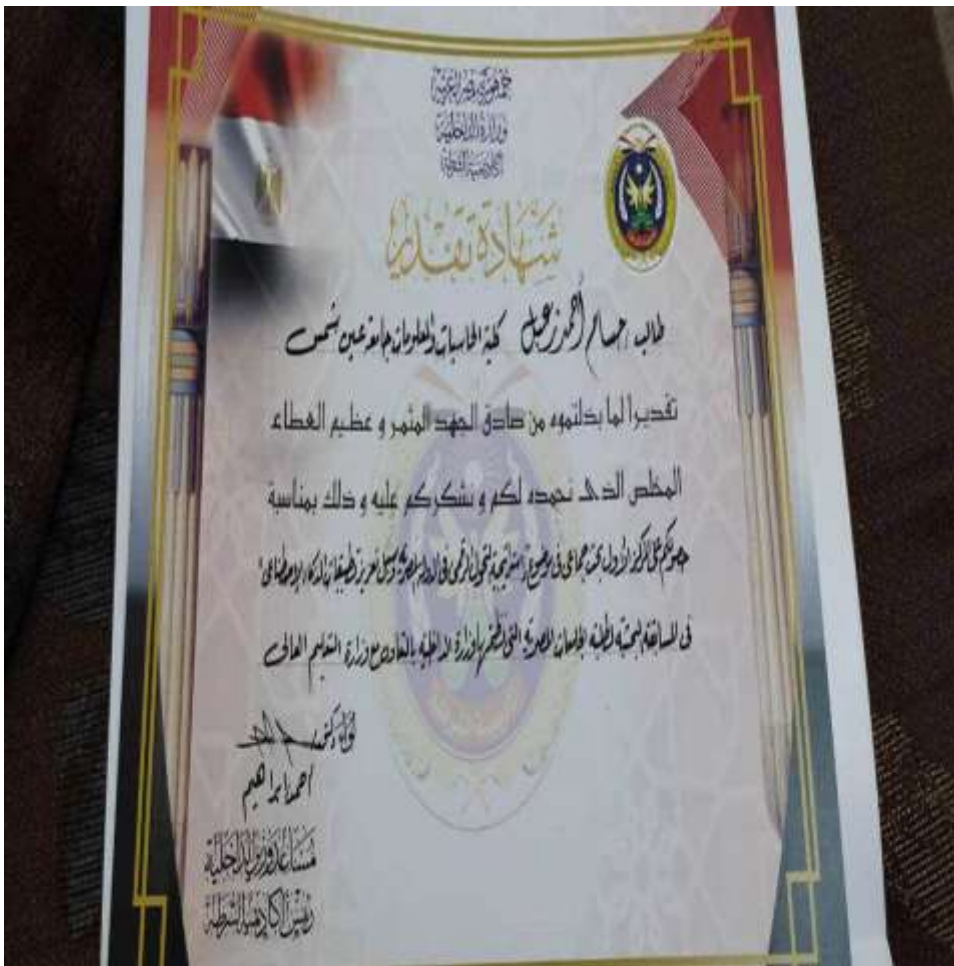 جمهورية مصر العربية
وزارة الداخلية
أكاديمية الشرطة
شهادة تقدير
طالب / حسام أحمد زعبل كلية الحاسبات والمعلومات جامعة عين شمس
تقديرا لما بذلتموه من صادق الجهد المثمر و عظيم العطاء
المخلص الذى نحمده لكم و نشكركم عليه و ذلك بمناسبة
حصولكم على المركز الأول بحث جماعى فى موضوع إستراتيجية التحول الرقمى فى الدولة المصرية وسبل تعزيز تطبيقات الذكاء الإصطناعى"
فى المسابقة البحثية لطلبة الجامعات المصرية التى تنظمها وزارة الداخلية بالتعاون مع وزارة التعليم العالى
لواء دكتور
أحمد إبراهيم
مساعد وزير الداخلية
رئيس أكاديمية الشرطة